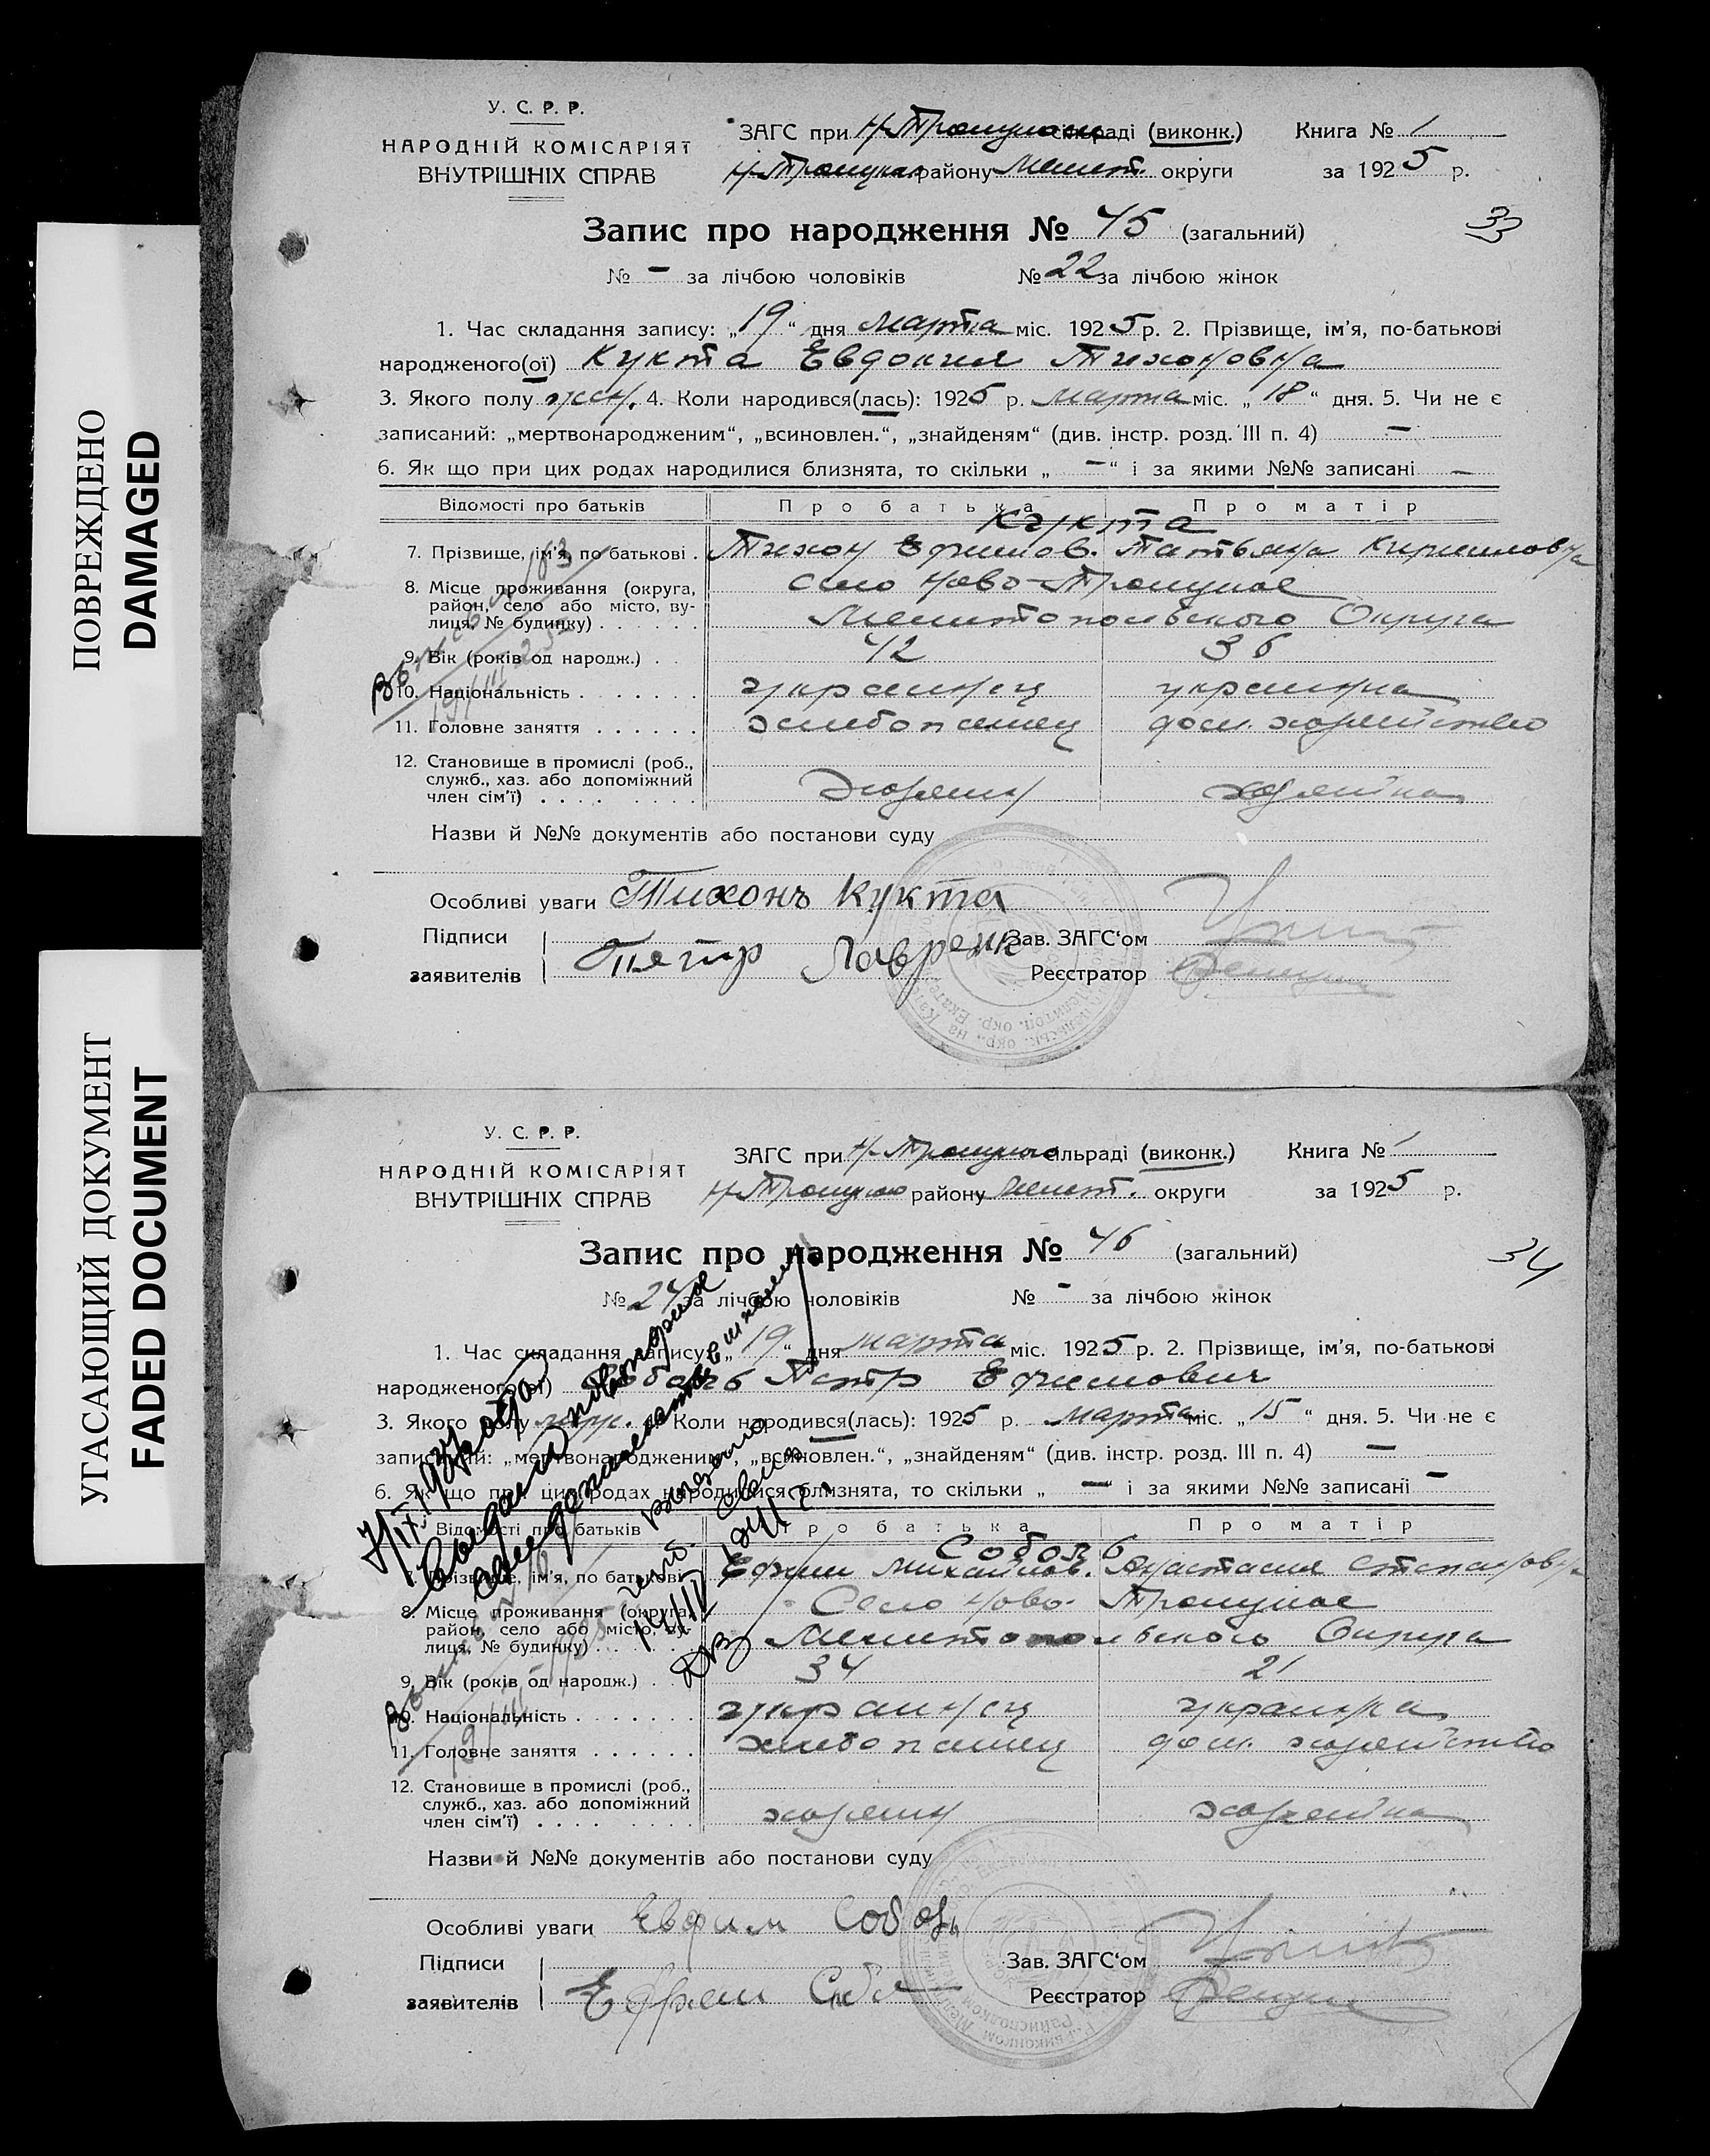 ПОВРЕЖДЕНО
DAMAGED
УГАСАЮЩИЙ ДОКУМЕНТ
FADED DOCUMENT
У. С. Р. Р.
НАРОДНІЙ КОМІСАРІЯТ
ВНУТРІШНІХ СПРАВ
ЗАГС при Н-Троицком сільраді (виконк.) Книга № 1
Н-Троицком району Мелит. округи за 1925 р.
33
Запис про народження № 45 (загальний)
№ – за лічбою чоловіків № 22 за лічбою жінок
1. Час складання запису: „19“ дня марта міс. 1925 р. 2. Прізвище, ім’я, по-батькові
народженого(ої) Кукта Евдокия Тихоновна
3. Якого полу жен. 4. Коли народився(лась): 1925 р. марта міс. „18“ дня. 5. Чи не є
записаний: „мертвонародженим“, „всиновлен.“, „знайденям“ (див. інстр. розд. III п. 4) –
6. Як що при цих родах народилися близнята, то скільки „–“ і за якими №№ записані –
Відомості про батьків Про батька Про матір
Кукта
7. Прізвище, ім’я, по батькові . Тихон Ефимов. Татьяна Кирилловна
8. Місце проживання (округа, село Ново-Троицкое
район, село або місто, ву-
лиця, № будинку) . . . . . . Мелитопольского Округа
9. Вік (років од народж.) . . 42 36
10. Національність . . . . . . . украинец украинка
11. Головне заняття . . . . . . хлебопашец дом. хозяйство
12. Становище в промислі (роб.,
служб., хаз. або допоміжний
член сім’ї) . . . . . . . . хозяин хозяйка
Назви й №№ документів або постанови суду
Особливі уваги Тихонъ Кукта
Підписи Зав. ЗАГС‘ом
заявителів Петр Лавренк Реєстратор
У. С. Р. Р.
НАРОДНІЙ КОМІСАРІЯТ
ВНУТРІШНІХ СПРАВ
ЗАГС при Н-Троицкого сільраді (виконк.) Книга № 1
Н-Троицкого району Мелит. округи за 1925 р.
34
Запис про народження № 46 (загальний)
№ 24 за лічбою чоловіків № – за лічбою жінок
1. Час складання запису: „19“ дня марта міс. 1925 р. 2. Прізвище, ім’я, по-батькові
народженого(ої) Соболь Петр Ефимович
3. Якого полу муж. 4. Коли народився(лась): 1925 р. марта міс. „15“ дня. 5. Чи не є
записаний: „мертвонародженим“, „всиновлен.“, „знайденям“ (див. інстр. розд. III п. 4) –
6. Як що при цих родах народилися близнята, то скільки „–“ і за якими №№ записані –
Відомості про батьків Про батька Про матір
Соболь
7. Прізвище, ім’я, по батькові . Ефим Михайлов. Анастасия Степановна
8. Місце проживання (округа, Село Ново-Троицкое
район, село або місто, ву-
лиця, № будинку) . . . Мелитопольского Округа
9. Вік (років од народж.) . . 34 21
10. Національність . . . . . . . украинец украинка
11. Головне заняття . . . . . . хлебопашец дом. хозяйство
12. Становище в промислі (роб.,
служб., хаз. або допоміжний
член сім’ї) . . . . . . . . хозяин хозяйка
Назви й №№ документів або постанови суду
Особливі уваги Евфим Соболь
Підписи Зав. ЗАГС‘ом
заявителів Реєстратор